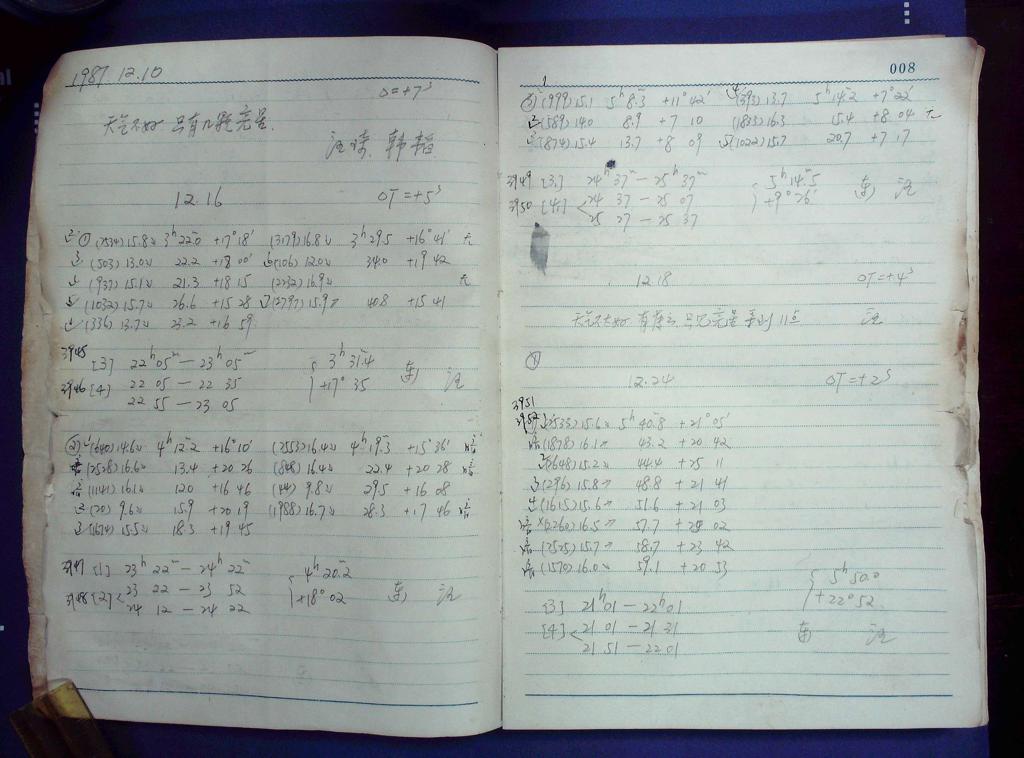 1987 12.10
OT=+7ˢ
天气不好 只有几颗亮星.
汪琦. 韩韬
12.16 OT=+5ˢ
① (2534)15.8 3ʰ22.0 +17°18′ (3179)16.8 3ʰ29.5 +16°41′ 无
(503)13.0 22.2 +18 00′ (106)12.0 34.0 +19 42
(937)15.1 21.3 +18 15 (2232)16.9 无
(1032)15.7 26.6 +15 28 (2797)15.9 40.8 +15 41
(336)13.7 23.2 +16 59
3945 [3] 22ʰ05ᵐ—23ʰ05ᵐ 3ʰ31.4 东 汪
3946 [4] 22 05—22 35 +17° 35
22 55—23 05
② (640)14.6 4ʰ12.2 +16°10′ (2553)16.4 4ʰ19.3 +15°36′ 暗
暗 (2528)16.6 13.4 +20 26 (848)16.4 22.4 +20 28 暗
暗 (1141)16.1 12.0 +16 46 (44) 9.8 29.5 +16 08
(20) 9.6 15.9 +20 19 (1988)16.7 28.3 +17 46 暗
(1674)15.5 18.3 +19 45
3947 [1] 23ʰ22ᵐ—24ʰ22ᵐ 4ʰ20.2
3948 [2] 23 22—23 52 +18° 02 东 汪
24 12—24 22
008
③ (999)15.1 5ʰ8.3 +11°42′ (393)13.7 5ʰ14.2 +7°22′
(589)14.0 8.9 +7 10 (1803)16.3 15.4 +8 04 无
(874)15.4 13.7 +8 09 (1022)15.7 20.7 +7 17
3949 [3.] 24ʰ37ᵐ—25ʰ37ᵐ 5ʰ14.5 东 汪
3950 [4.] 24 37—25 07 +9°26′
25 27—25 37
12.18 OT=+4ˢ
天气不太好 有薄云 只见亮星 等到11点 汪
①
12.24 OT=+2ˢ
3951
3952 (2533)15.6 5ʰ40.8 +21°05′
暗 (1878)16.1 43.2 +20 42
(648)15.2 44.4 +25 11
(296)15.8 48.8 +21 41
(1615)15.6 51.6 +21 03
暗 (2260)16.5 57.7 02
暗 (2525)15.7 58.7 +23 42
暗 (1570)16.0 59.1 +20 53
5ʰ50.0
[3] 21ʰ01—22ʰ01 +22°52
[4] 21 01—21 31 东 汪
21 51—22 01